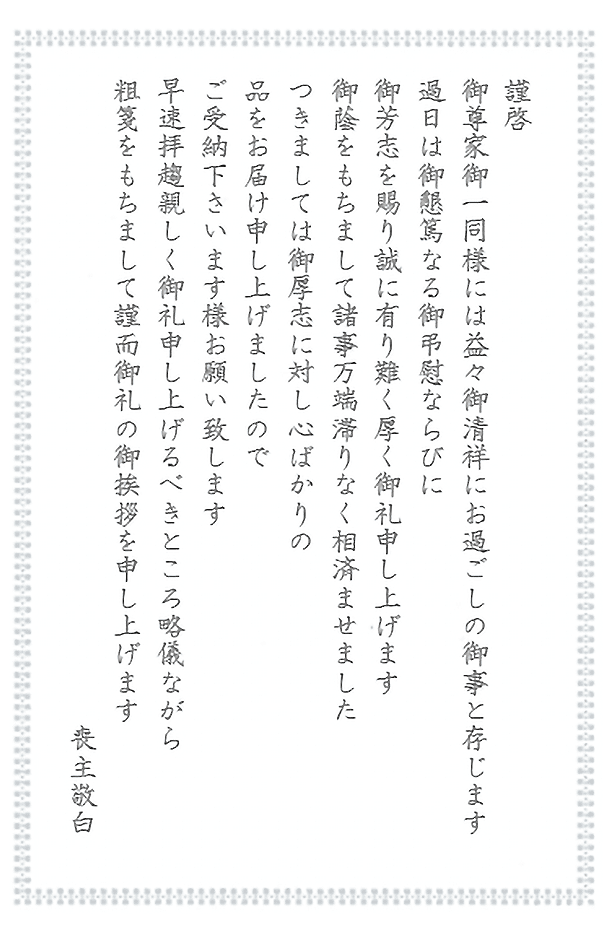 謹啓
御尊家御一同様には益々御清祥にお過ごしの御事と存じます
過日は御懇篤なる御弔慰ならびに
御芳志を賜り誠に有り難く厚く御礼申し上げます
御蔭をもちまして諸事万端滞りなく相済ませました
つきましては御厚志に対し心ばかりの
品をお届け申し上げましたので
ご受納下さいます様お願い致します
早速拝趨親しく御礼申し上げるべきところ略儀ながら
粗箋をもちまして謹而御礼の御挨拶を申し上げます
喪主敬白